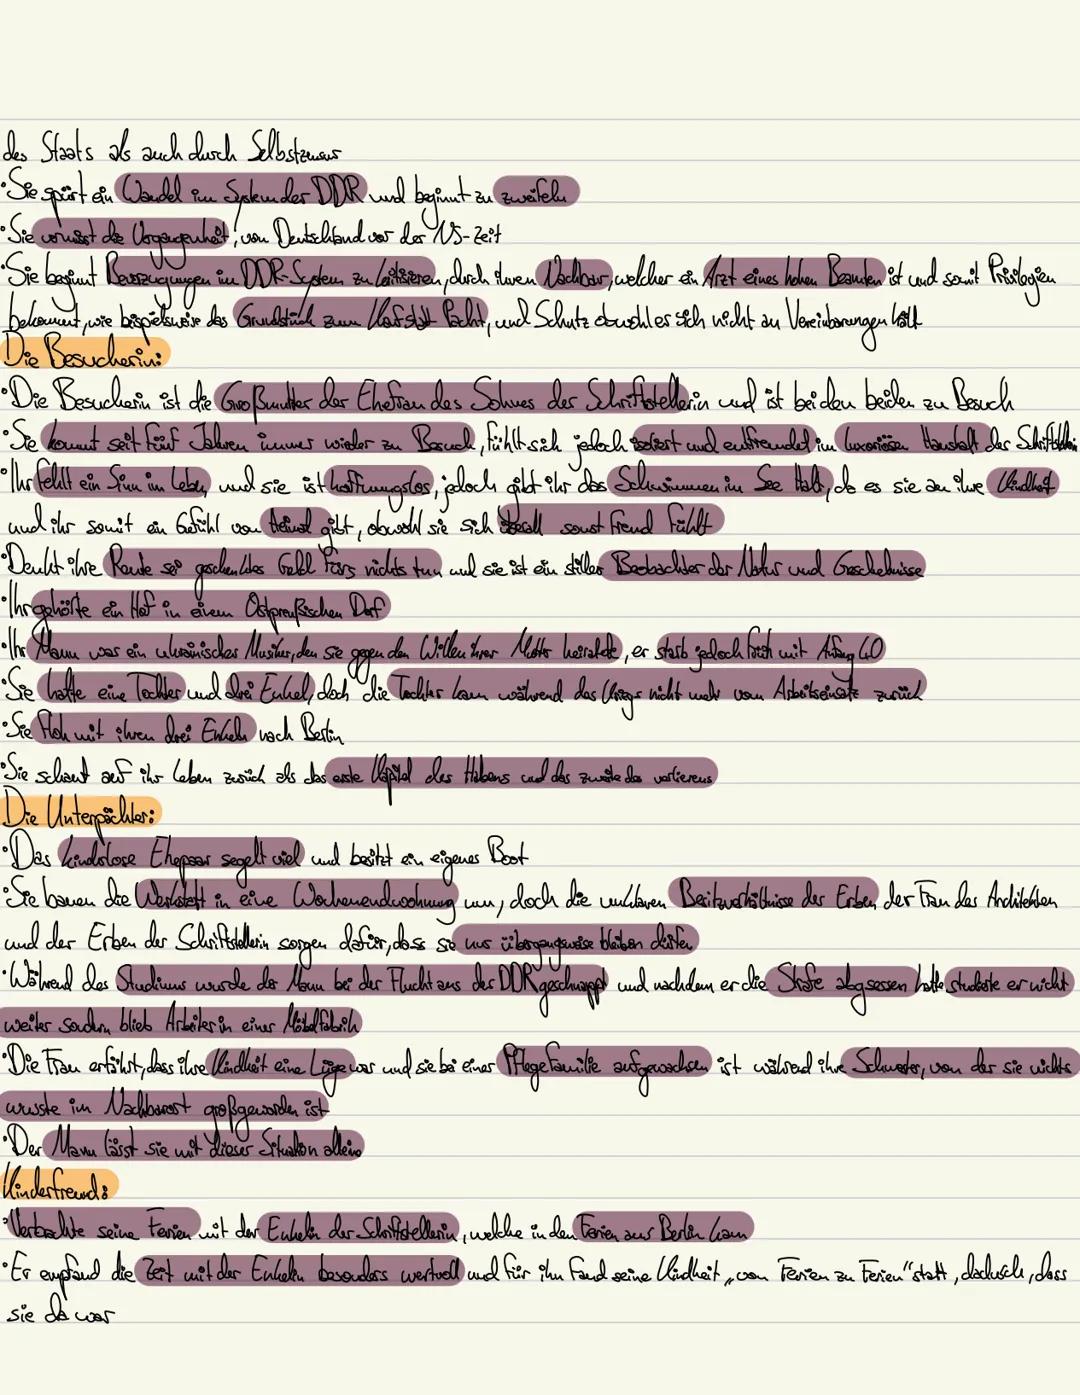 des Staats als auch durch Selbstzensur
•Sie spürt ein Wandel im System der DDR und beginnt zu zweifeln
•Sie vermisst die Vergangenheit, von Deutschland vor der NS-Zeit
•Sie beginnt Bevorzugungen im DDR-System zu kritisieren, durch ihren Nachbar, welcher ein Arzt eines hohen Beamten ist und somit Privilegien
bekommt, wie beispielsweise das Grundstück zum Kauf statt Pacht, und Schutz obwohl es sich nicht an Vereinbarungen hält
Die Besucherin:
•Die Besucherin ist die Großmutter der Ehefrau des Sohnes der Schriftstellerin und ist bei den beiden zu Besuch
•Sie kommt seit fünf Jahren immer wieder zu Besuch, fühlt sich jedoch isoliert und entfremdet im luxoriösen Haushalt der Schriftstellerin
•Ihr fehlt ein Sinn im Leben, und sie ist hoffnungslos, jedoch gibt ihr das Schwimmen im See Halt, da es sie an ihre Kindheit
und ihr somit ein Gefühl von Heimat gibt, obwohl sie sich überall sonst fremd fühlt
•Denkt ihre Rente sei geschenktes Geld fürs nichts tun und sie ist ein stiller Beobachter der Natur und Geschehnisse
•Ihr gehörte ein Hof in einem Ostpreußischen Dorf
•Ihr Mann war ein ukrainischer Musiker, den sie gegen den Willen ihrer Mutter heiratete, er starb jedoch früh mit Anfang 40
•Sie hatte eine Tochter und drei Enkel, doch die Tochter kam während des Kriegs nicht mehr vom Arbeitseinsatz zurück
•Sie floh mit ihren drei Enkeln nach Berlin
•Sie schaut auf ihr Leben zurück als das erste Kapitel des Habens und das zweite des verlierens
Die Unterpächter:
•Das kinderlose Ehepaar segelt viel und besitzt ein eigenes Boot
•Sie bauen die Werkstatt in eine Wochenendwohnung um, doch die unklaren Besitzverhältnisse der Erben der Frau des Architekten
und der Erben der Schriftstellerin sorgen dafür, dass sie nur übergangsweise bleiben dürfen
•Während des Studiums wurde der Mann bei der Flucht aus der DDR geschnappt und nachdem er die Strafe abgesessen hatte studierte er nicht
weiter sondern blieb Arbeiter in einer Möbelfabrik
•Die Frau erfährt, dass ihre Kindheit eine Lüge war und sie bei einer Pflegefamilie aufgewachsen ist während ihre Schwester, von der sie nichts
wusste im Nachbarort großgeworden ist
•Der Mann lässt sie mit dieser Situation alleine
Kinderfreund:
•Verbrachte seine Ferien mit der Enkelin der Schriftstellerin, welche in den Ferien aus Berlin kam
•Er empfand die Zeit mit der Enkelin besonders wertvoll und für ihn fand seine Kindheit „von Ferien zu Ferien" statt, dadurch, dass
sie da war